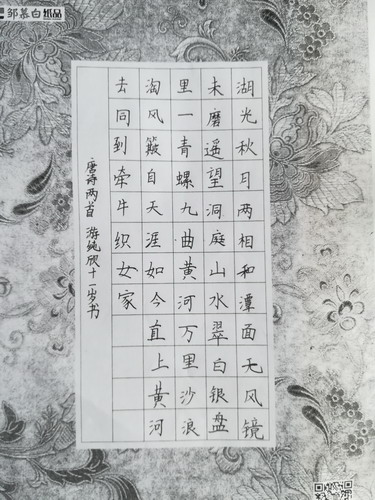 邹慕白纸品
湖光秋月两相和潭面无风镜
未磨遥望洞庭山水翠白银盘
里一青螺九曲黄河万里沙浪
淘风簸自天涯如今直上黄河
去同到牵牛织女家
唐诗两首 游纯欣十一岁书